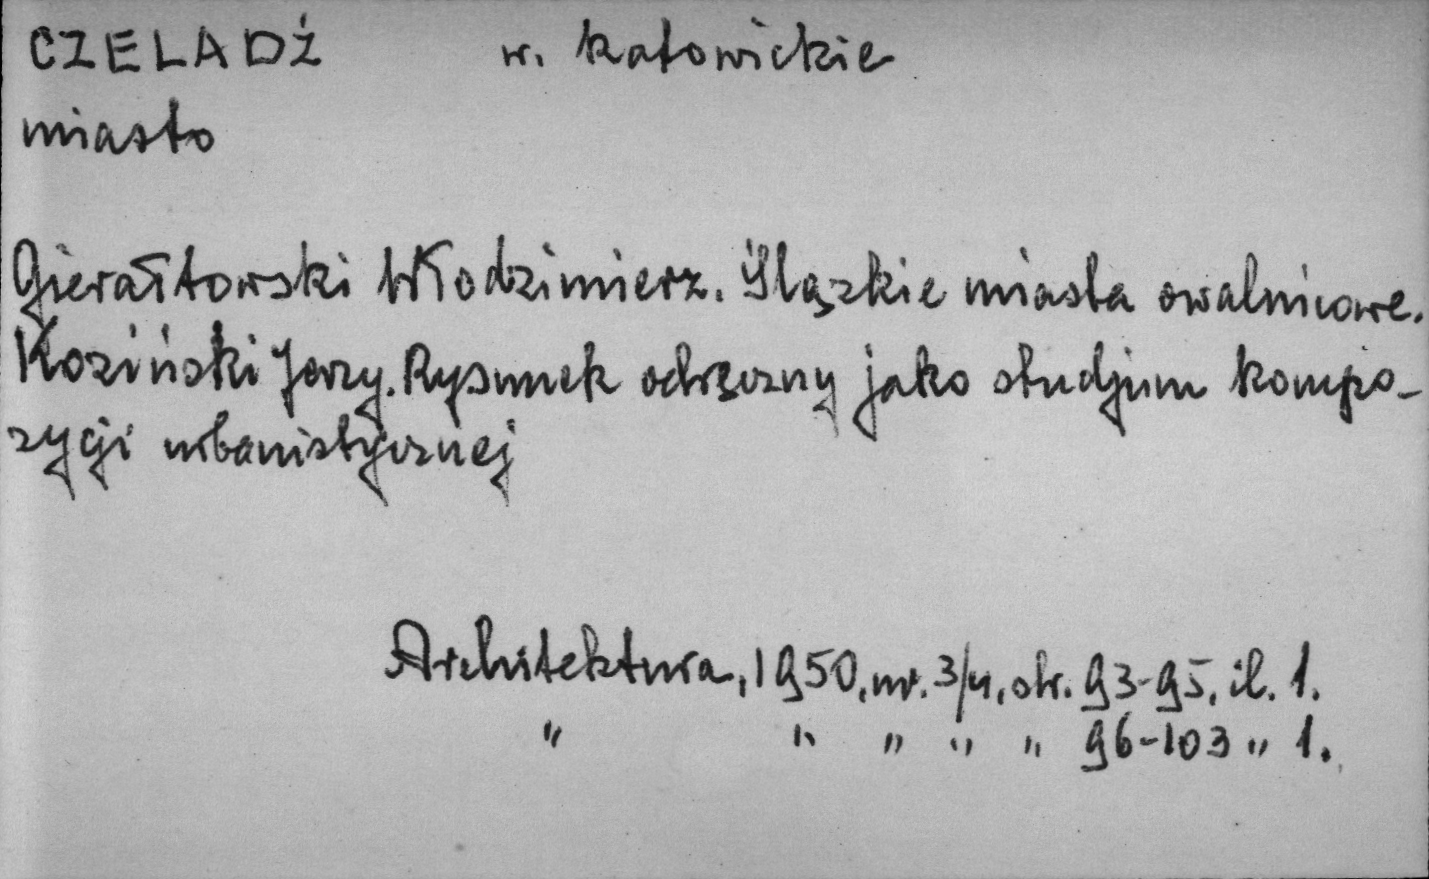 CZELADŹ w. katowickie
miasto
Gierałtowski Włodzimierz. Śląskie miasta owalnicowe.
Koziński Jerzy. Rysunek odręczny jako studjum kompo-
zycji urbanistycznej
Architektura, 1950, nr. 3/4, str. 93-95, il. 1.
" " " " " 96-103 " 1.